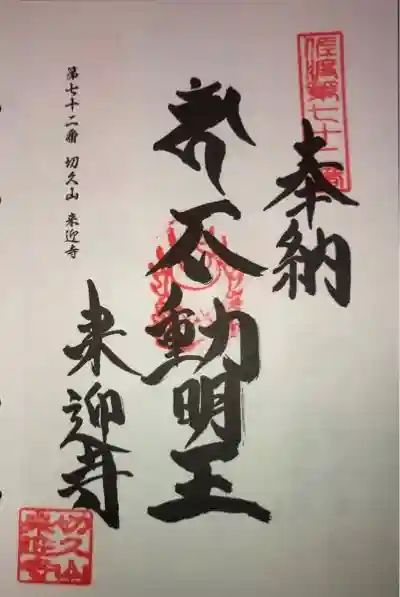 佐渡第七十二番
奉納
新不動明王
来迎寺
第七十二番 切久山 来迎寺
切久山
来迎寺